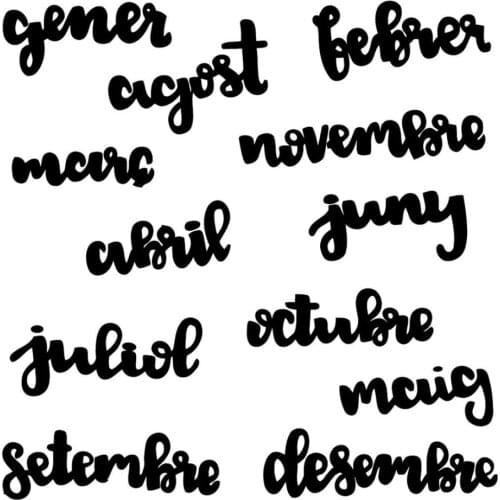 gener
febrer
agost
novembre
març
juny
abril
octubre
juliol
maig
setembre
desembre